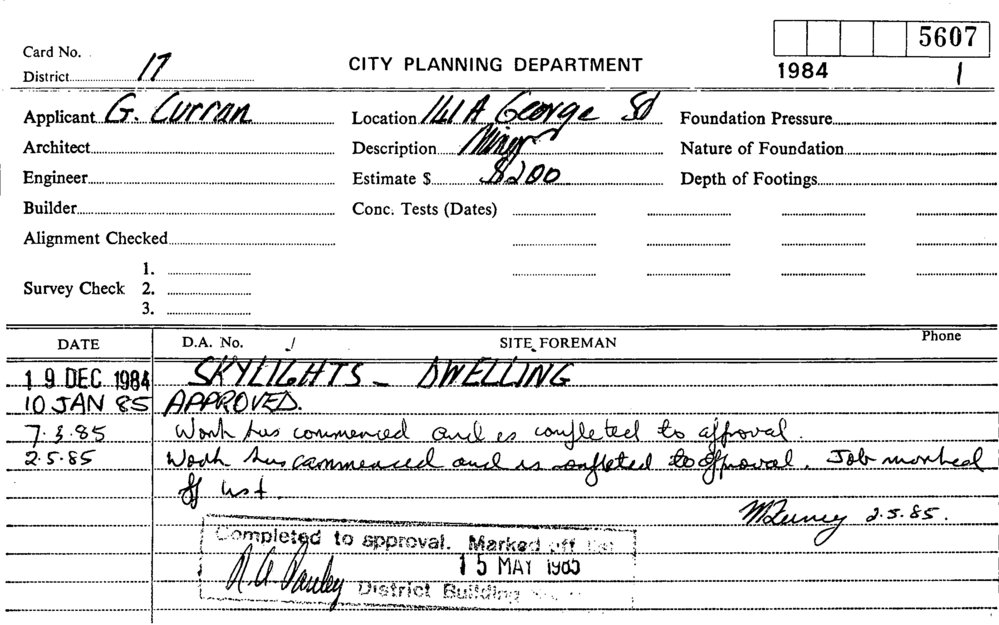 5607
Card No.
District 17
CITY PLANNING DEPARTMENT
1984 1
Applicant G. Curran
Location 141A George St
Foundation Pressure
Architect
Description Minor
Nature of Foundation
Engineer
Estimate $ $200
Depth of Footings
Builder
Conc. Tests (Dates)
Alignment Checked
1.
Survey Check 2.
3.
DATE D.A. No. / SITE FOREMAN Phone
19 DEC 1984 SKYLIGHTS - DWELLING
10 JAN 85 APPROVED.
7.3.85 Work has commenced and is completed to approval.
2.5.85 Work has commenced and is completed to approval. Job marked
off list.
2.5.85.
Completed to approval. Marked off list
15 MAY 1985
District Building